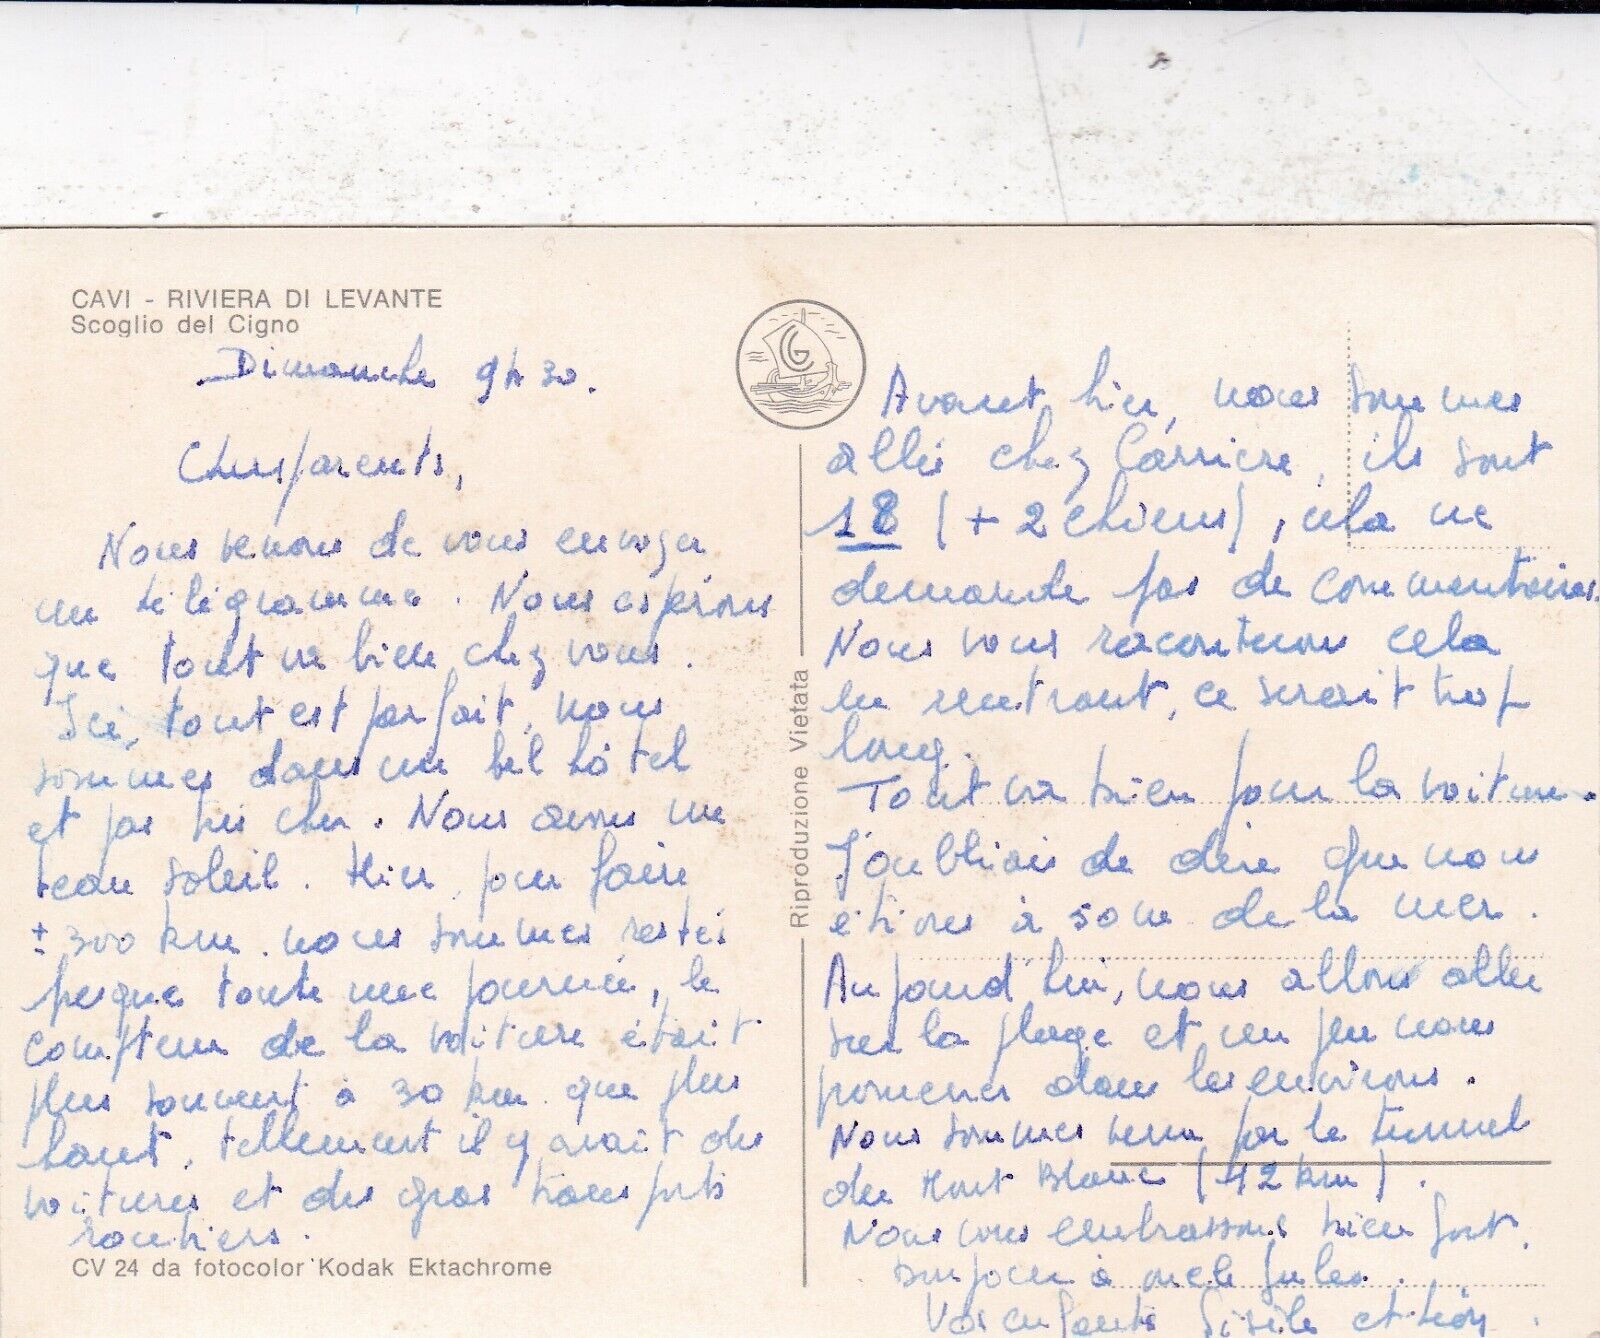 CAVI - RIVIERA DI LEVANTE
Scoglio del Cigno
Dimanche 9h30.
Chers parents,
Nous venons de vous envoyer
un télégramme. Nous espérons
que tout va bien chez vous.
Ici, tout est parfait, nous
sommes dans un bel hôtel
et pas très cher. Nous avons un
beau soleil. Hier, pour faire
± 300 km. nous sommes restés
presque toute une journée, le
compteur de la voiture était
plus souvent à 30 km que plus
haut, tellement il y avait des
voitures et des gros transports
routiers.
CV 24 da fotocolor Kodak Ektachrome
Riproduzione Vietata
Avant hier, nous sommes
allés chez Carriere, ils sont
18 (+ 2 chiens), cela ne
demande pas de commentaires.
Nous vous raconterons cela
en rentrant, ce serait trop
long.
Tout va bien pour la voiture.
J'oubliais de dire que nous
étions à 50 m. de la mer.
Aujourd'hui, nous allons aller
sur la plage et un peu nous
promener dans les environs.
Nous sommes venu par le tunnel
du Mont Blanc (12 km).
Nous vous embrassons bien fort.
Bonjour à
Vos enfants et